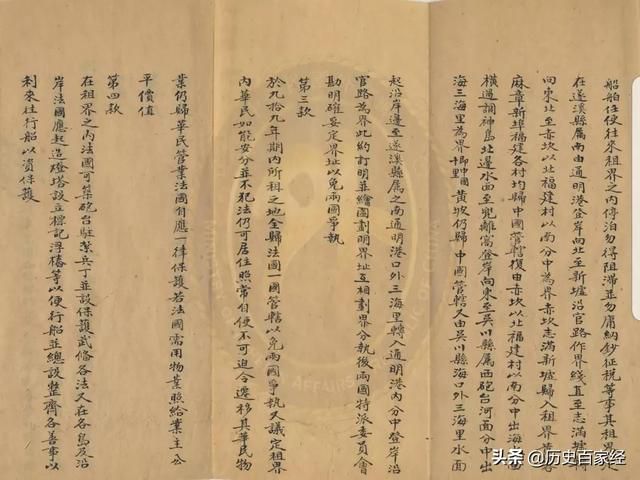 船舶任便往來租界之內停泊勿得阻滯並勿庸納鈔征稅等事其租界定
在遂溪縣屬南由通明港登岸向北至新墟沿官路作界綫直至志滿墟轉
向東北至赤坎以北福建村以南分中為界赤坎志滿新墟歸入租界黃
麻章新埠福建各村均歸中國管轄復由赤坎以北福建村以南分中出海水面
橫過調神島北邊水面至兜離窩登岸向東至吳川縣屬西砲台河面分中出
海三海里為界即中國十里黃坡仍歸中國管轄又由吳川縣海口外三海里水面
起沿岸邊至遂溪縣屬之南通明港口外三海里轉入通明港內分中登岸沿
官路為界此約訂明並繪圖劃明界址互相劃界分執後兩國特派委員會
勘明確妥定界址以免兩國爭執
第三款
於九拾九年期內所租之地全歸法國一國管轄以免兩國爭執又議定租界
內華民如能安分並不犯法仍可居住照常自便不可迫令遷移其華民物
業仍歸華民管業法國自應一律保護若法國需用物業照給業主公
平價值
第四款
在租界之內法國可築砲台駐紮兵丁並設保護武備各法又在各島及沿
岸法國應起造燈塔設立標記浮樁等以便行船並總設整齊各善事以
利來往行船以資保護
AFFAIRS
头条@历史百家经